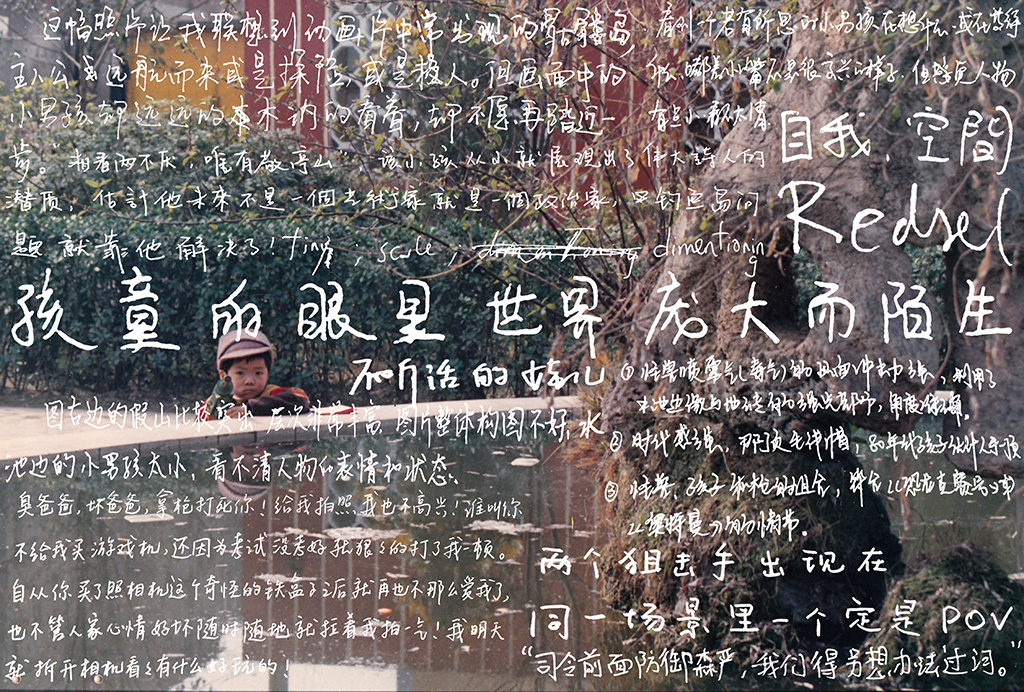 这幅照片让我联想到动画片中常出现的骷髅岛,
主人公或远航而来或是探险,或是救人。但画面中的
小男孩却远远的木木讷的看着,却不愿再踏近一
步。“相看两不厌,唯有敬亭山”,该小孩从小就展现出了伟大诗人的
潜质,估計他未來不是一個艺術家就是一個政治家,钓鱼岛问
题就靠他解决了!tiny; scale, dimentioning
看到一个若有所思的小男孩在想什么,或在等待
什么,嘟着小嘴不是很高兴的样子,但照页人物
有点小,教大情
自我、空間
Redsel
孩童的眼里世界庞大而陌生
不听话的女儿
图右边的假山比较突出 层次非常丰富,图片整体构图不好,水
池边的小男孩太小,看不清人物的表情和状态、
臭爸爸,坏爸爸,拿枪打死你!给我拍照,我也不高兴!谁叫你
不给我买游戏机,还因为考试没考好就狠狠的打了我一顿。
自从你买了照相机这个奇怪的铁盒子之后就再也不那么爱我了,
也不管人家心情好坏随时随地就拉着我拍一气!我明天
就拆开相机看看有什么好玩的!
① 怪兽喷雾气(毒气)的
② 时代感强,那顶毛线帽,80年代孩子
③ 怪兽、孩子和枪的组合,
的情节.
两个狙击手出现在
同一场景里一个定是POV
“司令前面防御森严,我们得另想办法过河。”